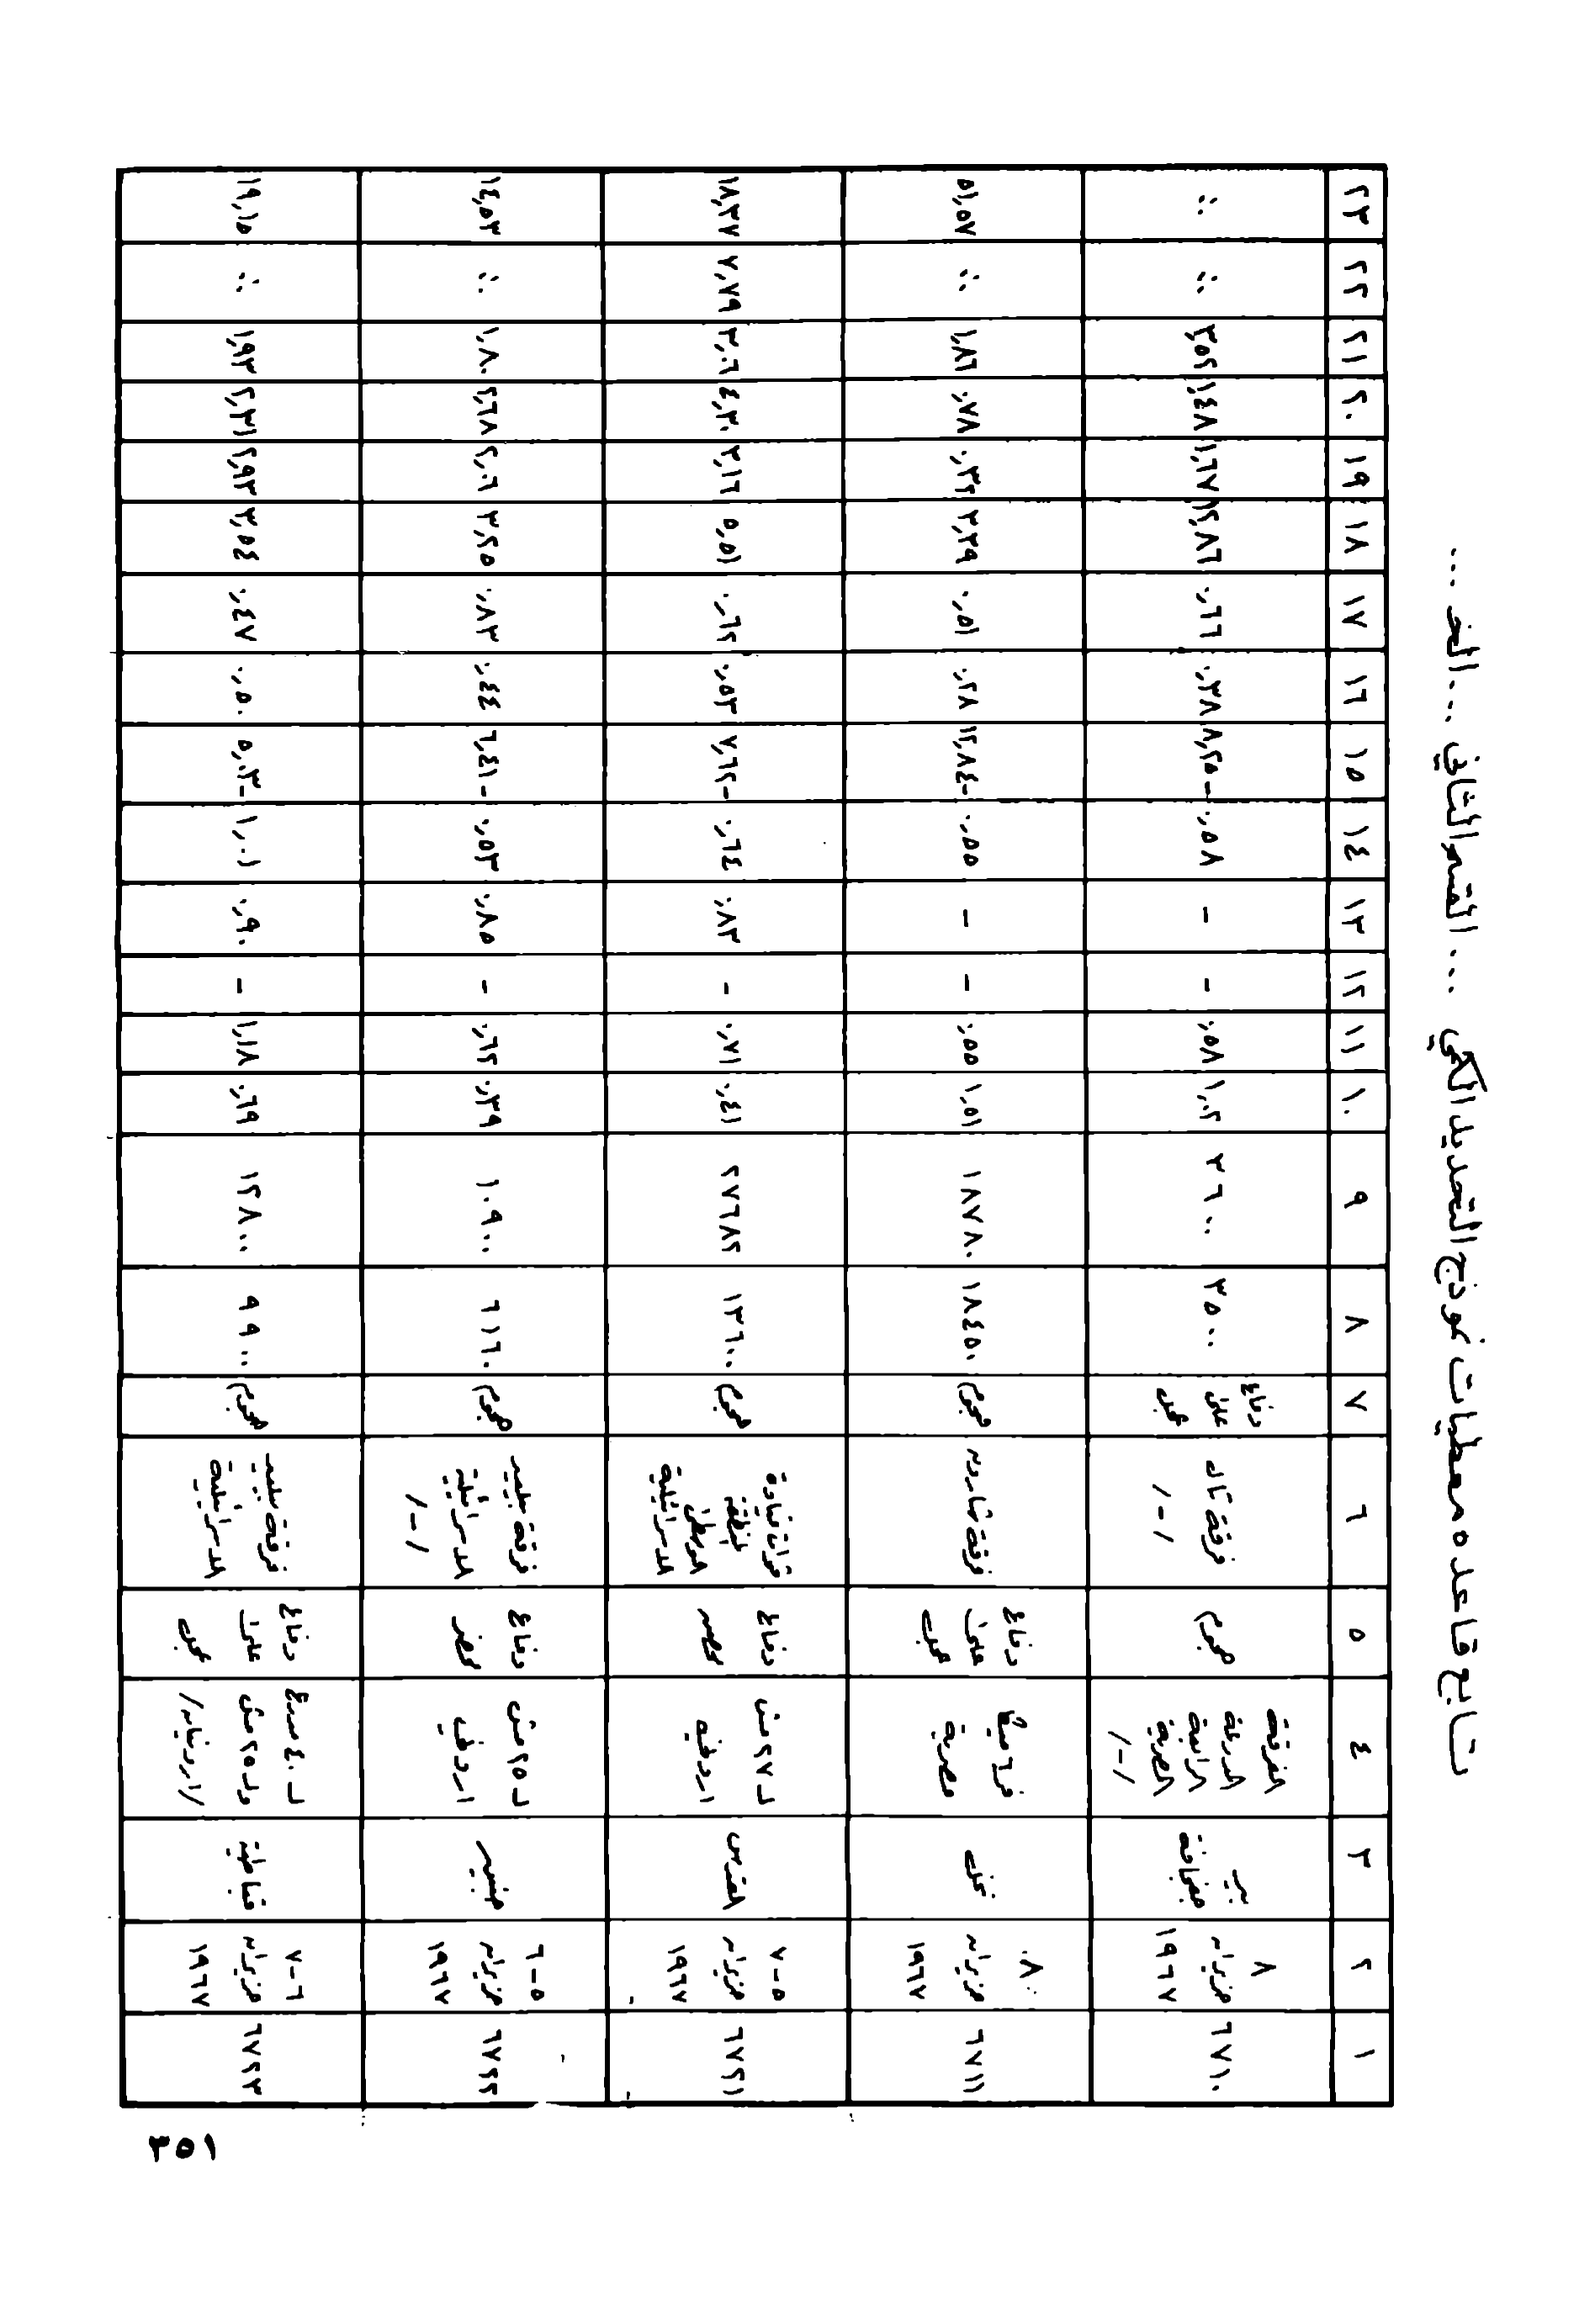 تابع قاعده معطيات نموذج التحديد الكمي ... القسم الثاني ... الخ ...
١ ٢ ٣ ٤ ٥ ٦ ٧ ٨ ٩ ١٠ ١١ ١٢ ١٣ ١٤ ١٥ ١٦ ١٧ ١٨ ١٩ ٢٠ ٢١ ٢٢ ٢٣
٦٧١٠
٨
حزيران
١٩٦٧
بير
جفجافة
الفرقة
المدرعة
الرابعة
المصرية
/-/
هجوم
فرقة تال
/-/
دفاع
على
عجل
٣٥٠٠
٣٦٠٠
١,٠٢
٠,٥٨
-
-
٠,٥٨
-٨,٢٥
٠,٣٨
٠,٦٦
١٢,٨٦
١,٦٧
١,٤٨
٣,٥٢
٠٠
٠٠
٦٧١١
٨
حزيران
١٩٦٧
نخل
فر٦ مشا
مصرية
دفاع
على
عجل
فرقة شارون
هجوم
١٨٤٥٠
١٨٧٨٠
١,٥١
٠,٥٥
-
-
٠,٥٥
-١٢,٨٤
٠,٢٨
٠,٥١
٣,٣٩
٠,٣٢
٠,٧٨
١,٨٦
٠٠
٥١,٥٧
٦٧٢١
٥-٧
حزيران
١٩٦٧
القدس
ل ٢٧ مش
اردنية
دفاع
محصن
قوات قيادة
المنطقة
الوسطى
الاسرائيلية
هجوم
١٣٦٠٠
٢٧٦٨٢
٠,٤١
٠,٧١
-
٠,٨٣
٠,٦٤
-٧,٦٢
٠,٥٣
٠,٦٢
٥,٥١
٣,١٦
٤,٣٠
٣,٠٦
٧,٧٩
١٨,٣٧
٦٧٢٢
٥-٦
حزيران
١٩٦٧
جنين
ل ٢٥ مش
اردني
دفاع
محضر
فرقة بيليد
الاسرائيلية
/-/
هجوم
٦١١٦٠
١٠٩٠٠
٠,٣٩
٠,٦٢
-
٠,٨٥
٠,٥٣
-٦,٤١
٠,٤٤
٠,٨٣
٣,٢٥
٢,٠٦
٢,٦٨
١,٨٠
٠٠
١٤,٥٣
٦٧٢٣
٦-٧
حزيران
١٩٦٧
قباطية
ل ٤٠ مدرع
ول ٢٥ مش
/اردنيان/
دفاع
على
عجل
فرقة بيليد
الاسرائيلية
هجوم
٩٩٠٠
١٢٨٠٠
٠,٦٩
١,١٨
-
٠,٩٠
١,٠١
-٥,٠٣
٠,٥٠
٠,٤٧
٣,٥٤
٢,٩٣
٢,٣١
١,٩٣
٠٠
١٩,١٥
٣٥١